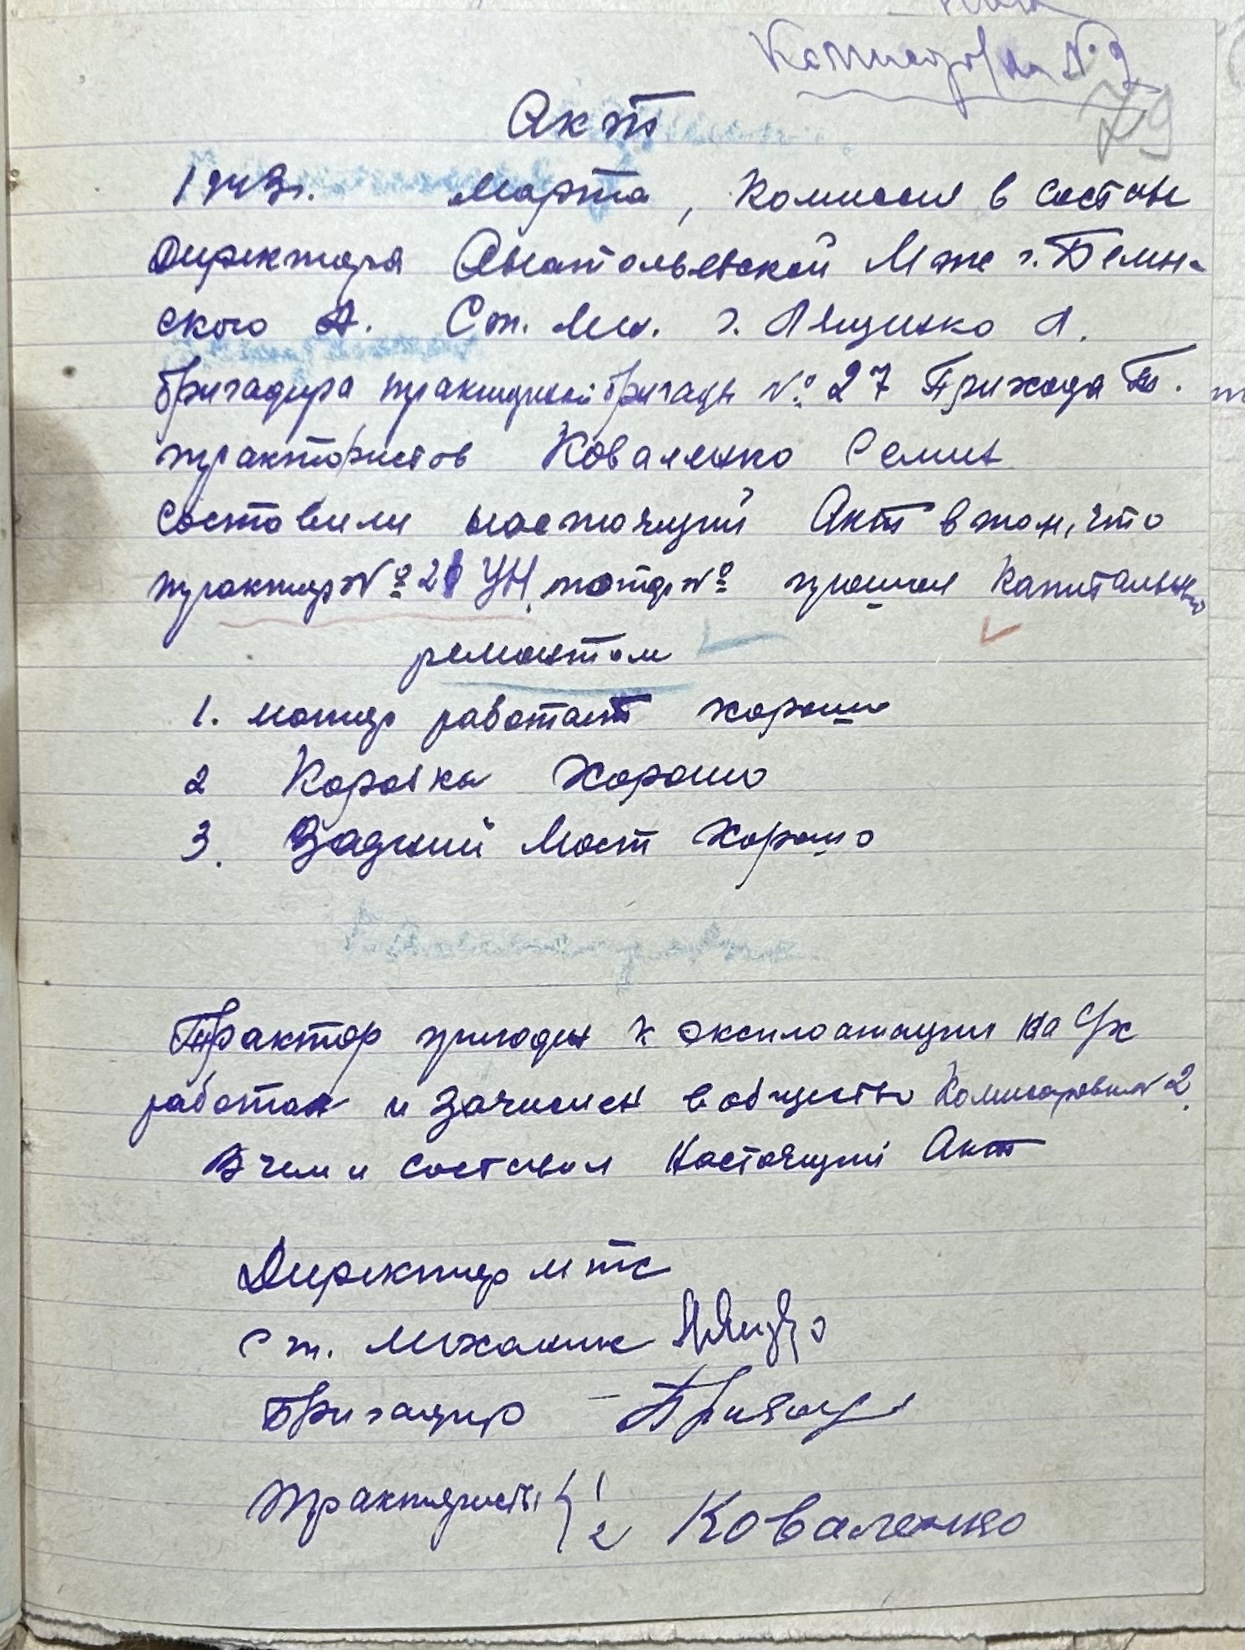 № 2
79
Акт
1943г. Марта, Комиссия в составе
Директора Анатольевской Мтс т. Белин-
ского А. Ст. Мех. т. Лященко А.
бригадира тракторной бригады № 27 Прихода Т.
трактористов Коваленко Семена
составили настоящий Акт в том, что
трактор № 21 УН, мотор № прошел капитальным
ремонтом
1. мотор работает хорошо
2 Коробка хорошо
3. Задний Мост хорошо
Трактор пригоден к эксплоатации на с/х
работах и зачислен в общество Комисаровка № 2.
В чем и составлен Настоящий Акт
Директор мтс
Ст. механик
Бригадир – Приход
трактористы 1
2 Коваленко